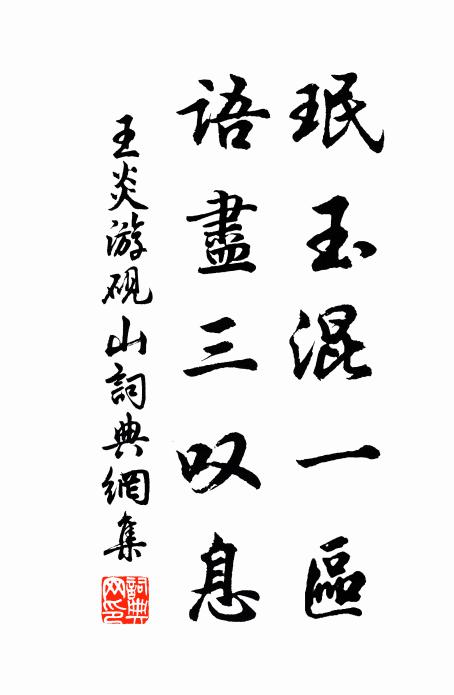 珉玉混一區
語盡三叹息
王炎游砚山詞典網集